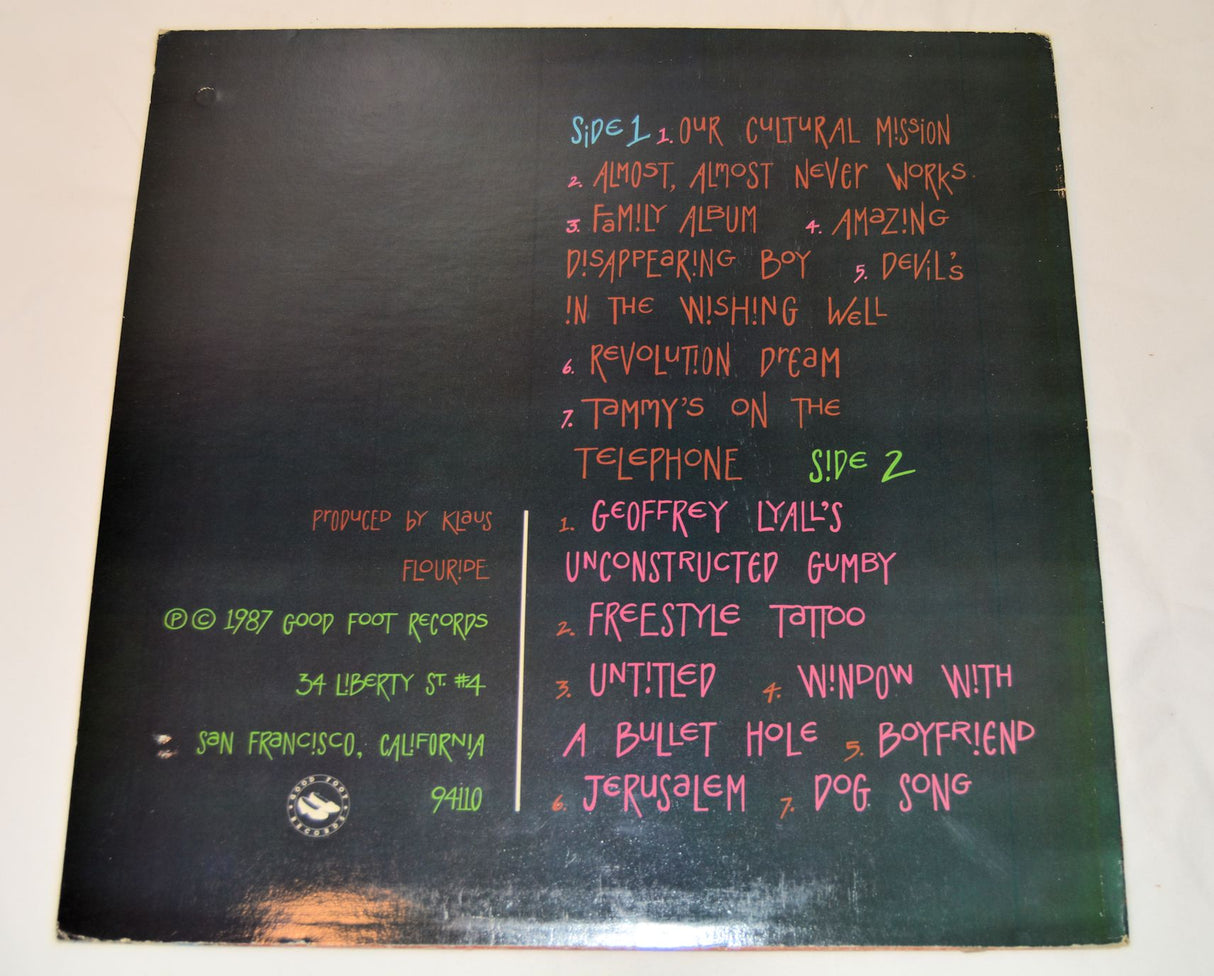 SiDE 1 1. OUR CULTURAL MISSION
2. ALMOST, ALMOST NEVER WORKS.
3. FAMILY ALBUM 4. AMAZING
DISAPPEARING BOY 5. DEVIL'S
IN THE WISHING WELL
6. REVOLUTION DREAM
7. TAMMY'S ON THE
TELEPHONE SIDE 2
1. GEOFFREY LYALL'S
UNCONSTRUCTED GUMBY
2. FREESTYLE TATTOO
3. UNTITLED 4. WINDOW WITH
A BULLET HOLE 5. BOYFRIEND
6. JERUSALEM 7. DOG SONG
PRODUCED BY KLAUS
FLOURIDE
℗ © 1987 GOOD FOOT RECORDS
34 LIBERTY ST. #4
SAN FRANCISCO, CALIFORNIA
94110
GOOD FOOT
RECORDS